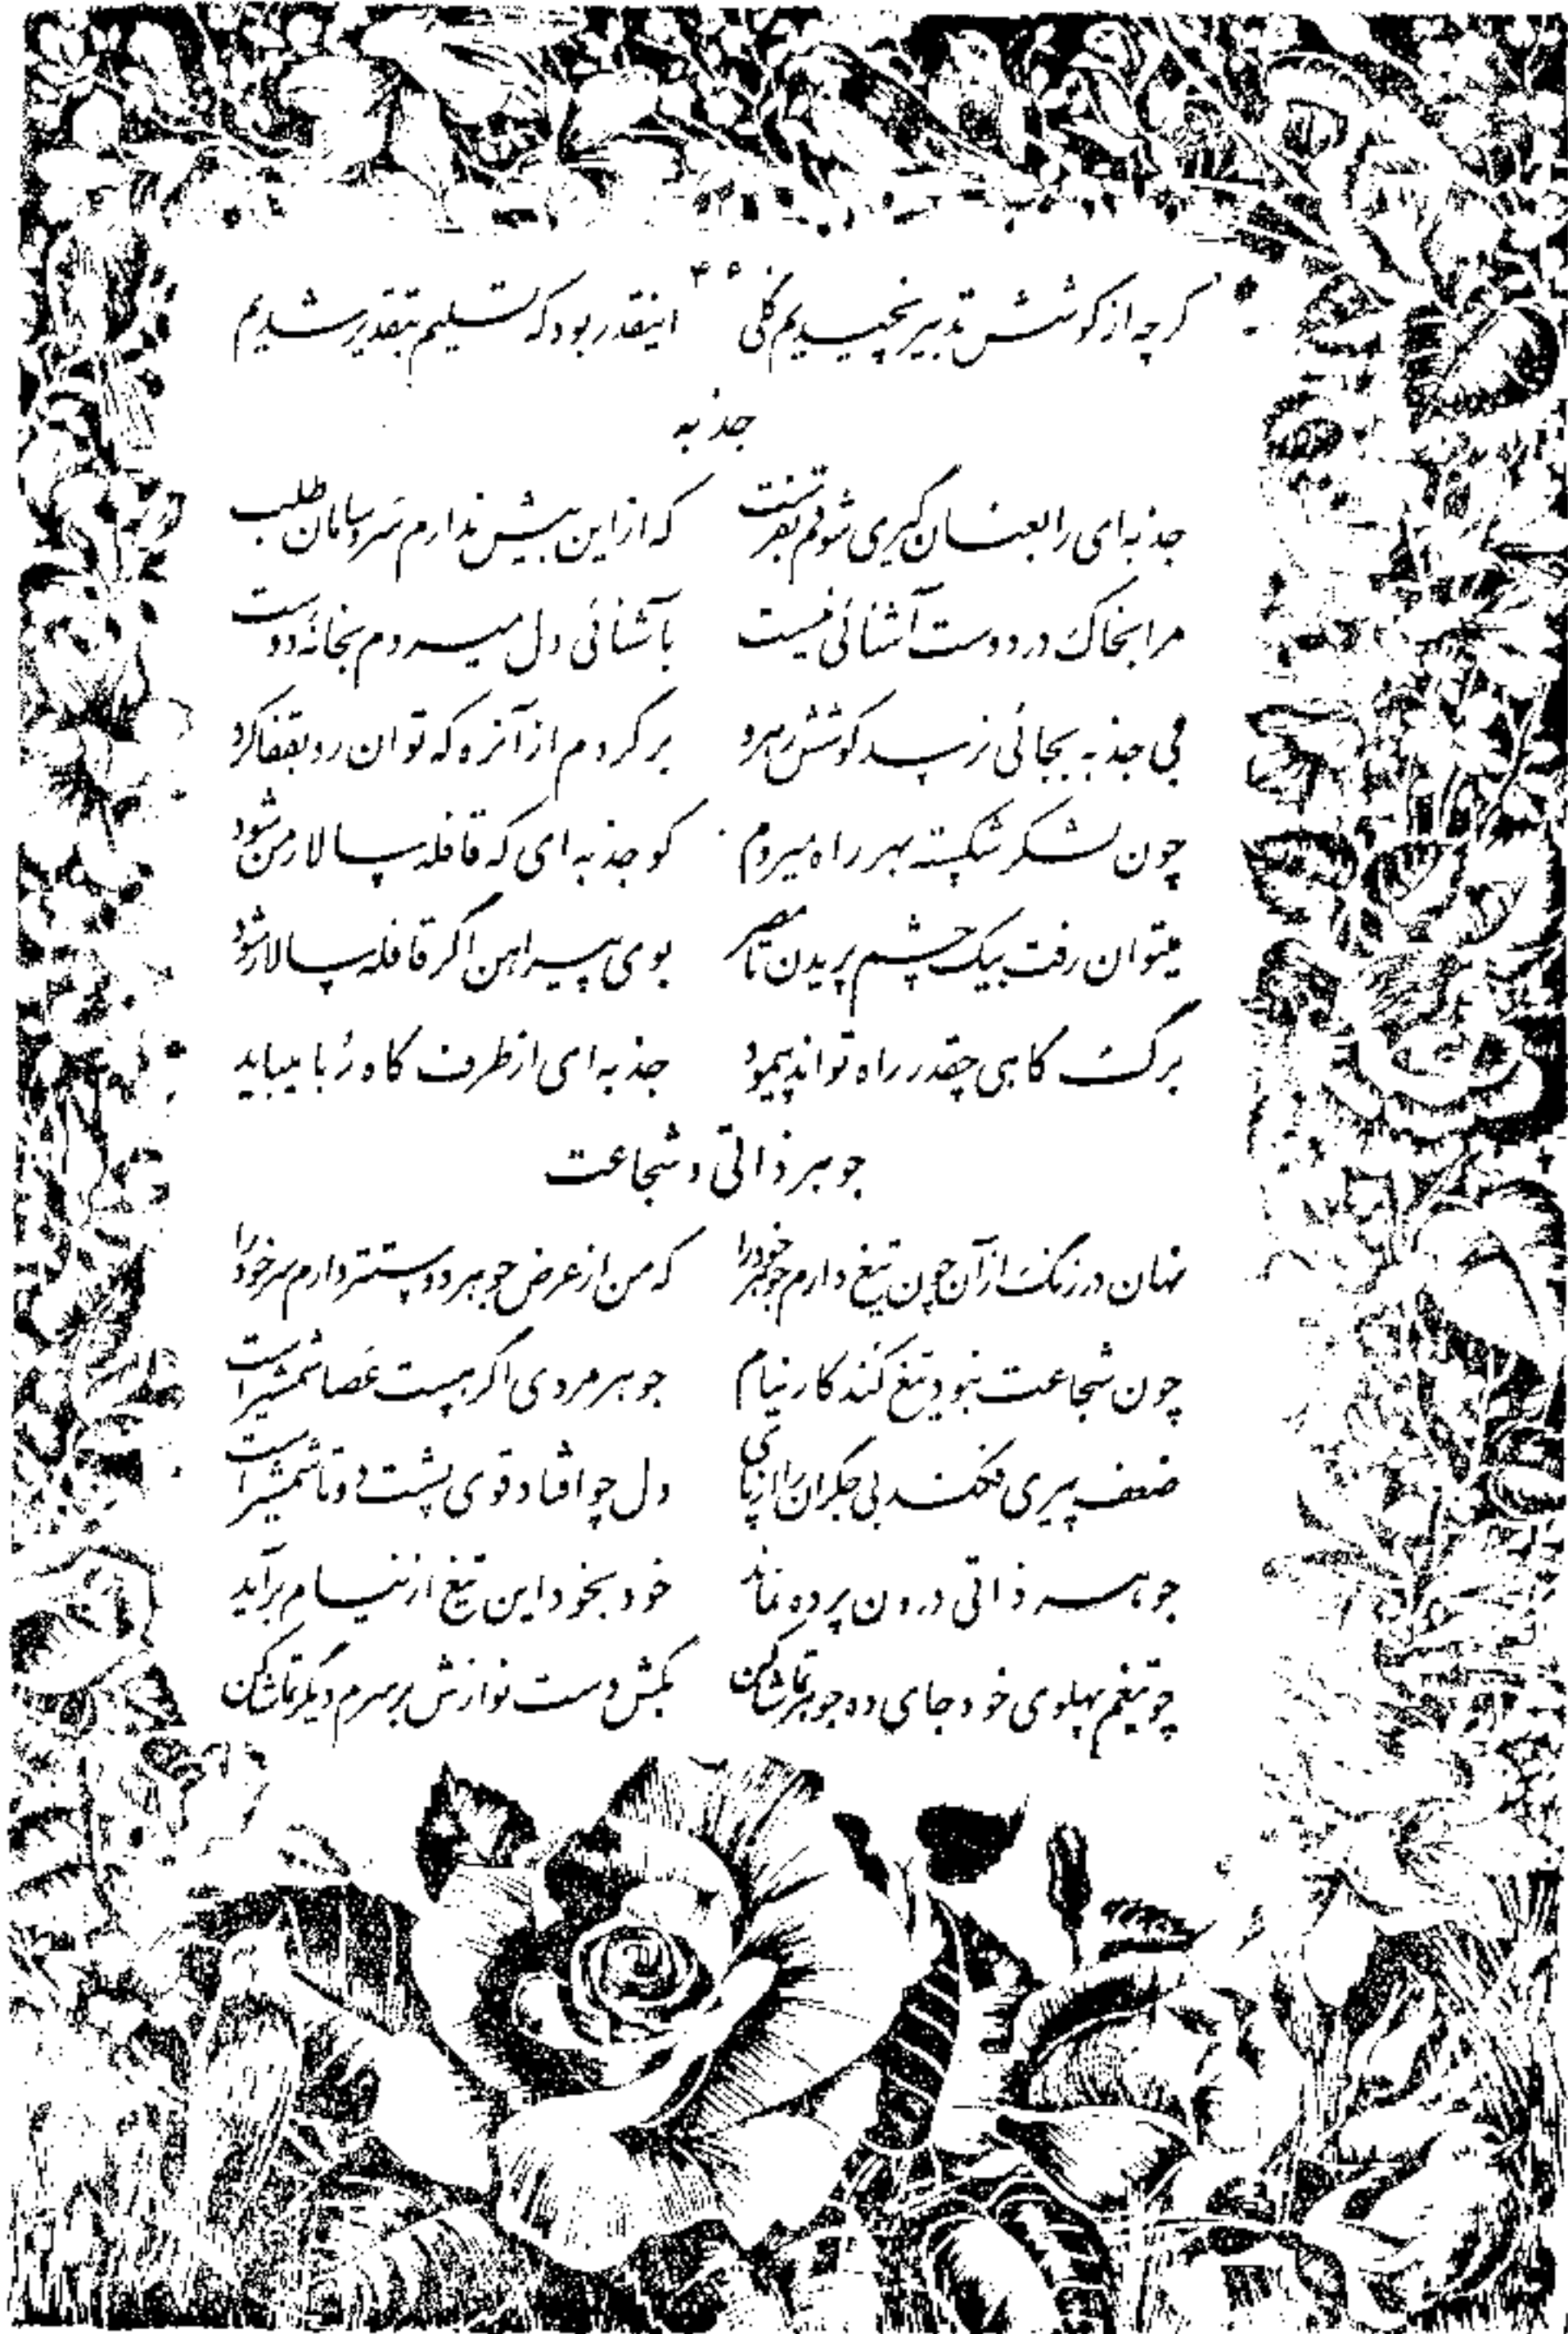 گرچه از کوشش تدبیر نچیدیم گلی ۴۵ اینقدر بود که تسلیم بتقدیر شدیم
جذبه
جذبه‌ای را بعنان گیری شوقم بفرست که از این بیش ندارم سر و سامان طلب
مرا بخاک در دوست آشنائی نیست با آشنائی دل میروم بخانهٔ دوست
بی جذبه بجائی نرسد کوشش رهرو برگردم از آنره که توان رو بقفا کرد
چون لشکر شکسته بهر راه میروم کو جذبه‌ای که قافله سالار من شود
میتوان رفت بیک چشم پریدن تا مصر بوی پیراهن اگر قافله سالار شود
برگ کاهی چقدر راه تواند پیمود جذبه‌ای از طرف کاه رُبا میباید
جوهر ذاتی و شجاعت
نهان در زنگ از آن چون تیغ دارم جوهر خود را که من از عرض جوهر دوستتر دارم سر خود را
چون شجاعت نبود تیغ کُند کار نیام جوهر مردی اگر هست عَصا شمشیر است
ضعف پیری فکند بی جگران را از پای دل چو افتاد قوی پشت دو تا شمشیر است
جوهر ذاتی درون پرده نماند خود بخود این تیغ از نیام برآید
چو تیغم پهلوی خود جای ده جوهر تماشا کن بکش دست نوازش بر سرم دیگر تماشا کن